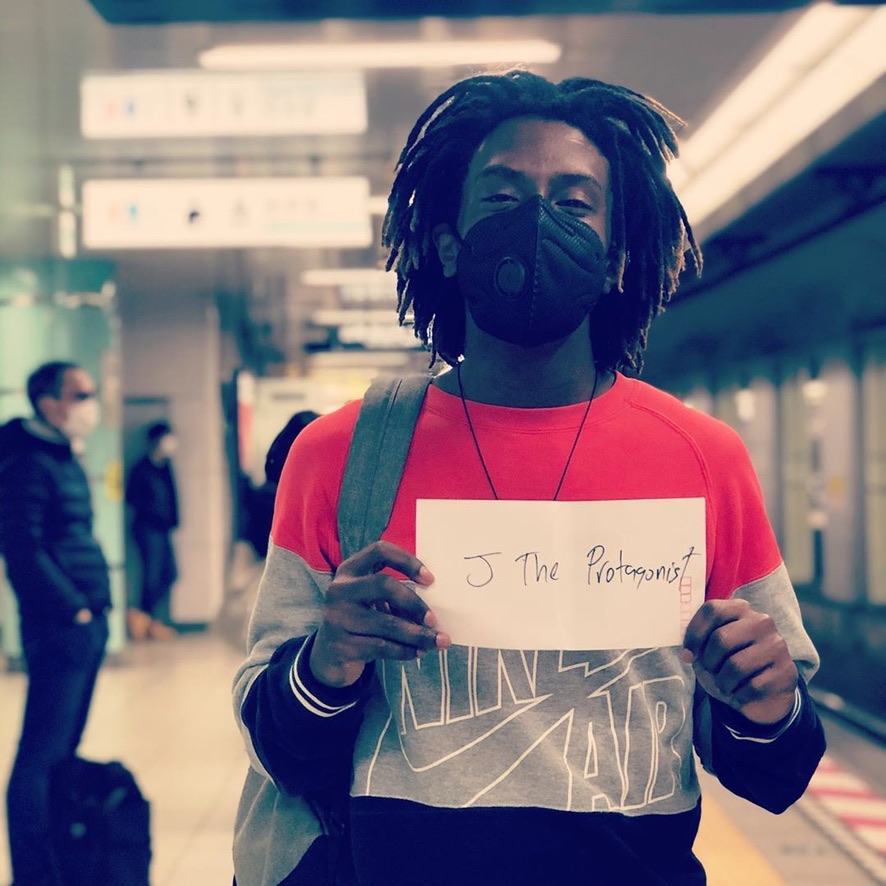 J The Protagonist
AIR